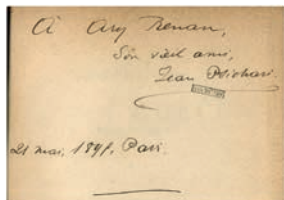 À Ary Renan,
Son vieil ami,
Jean Psichari
21 mai, 189 , Paris.